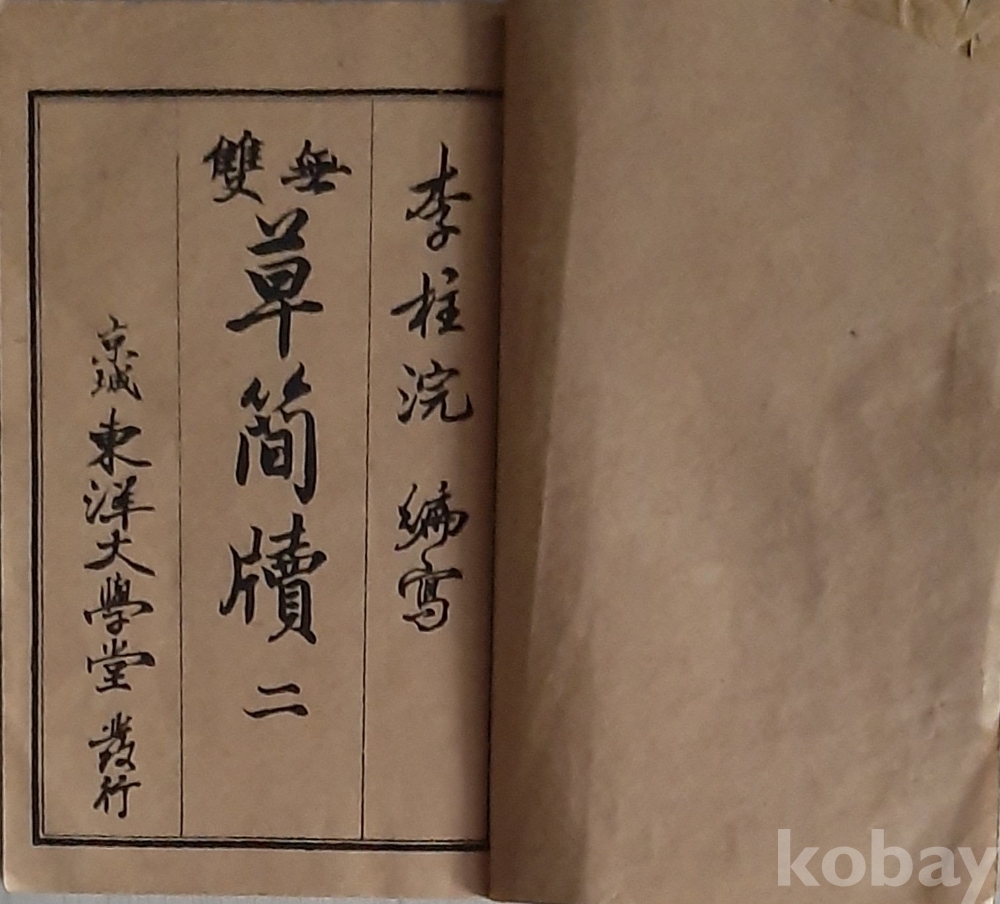 李柱浣 編寫
無雙
草簡牘 二
京城 東洋大學堂 發行
kobay